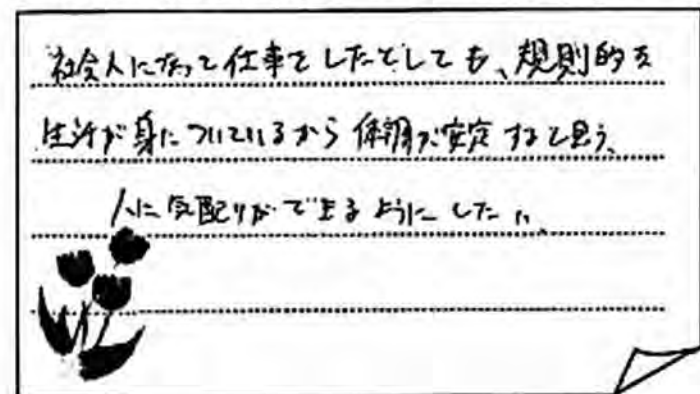 社会人になって仕事をしたとしても、規則的な
生活が身についているから体調が安定すると思う。
人に気配りができるようにしたい。